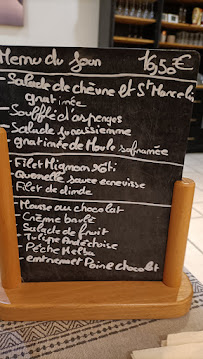 Menu du Jour 16,50€
- Salade de chèvre et St Marcelin
gratinée
- Soufflé d'asperges
- Salade Jurassienne
- gratinée de Moule safranée
- Filet Mignon rôti
- Quenelle sauce ecrevisse
- Filet de dinde
- Mousse au chocolat
- Crème brulé
- Salade de fruit
- Tulipe Ardéchoise
- Pêche Melba
- entremet Poire chocolat